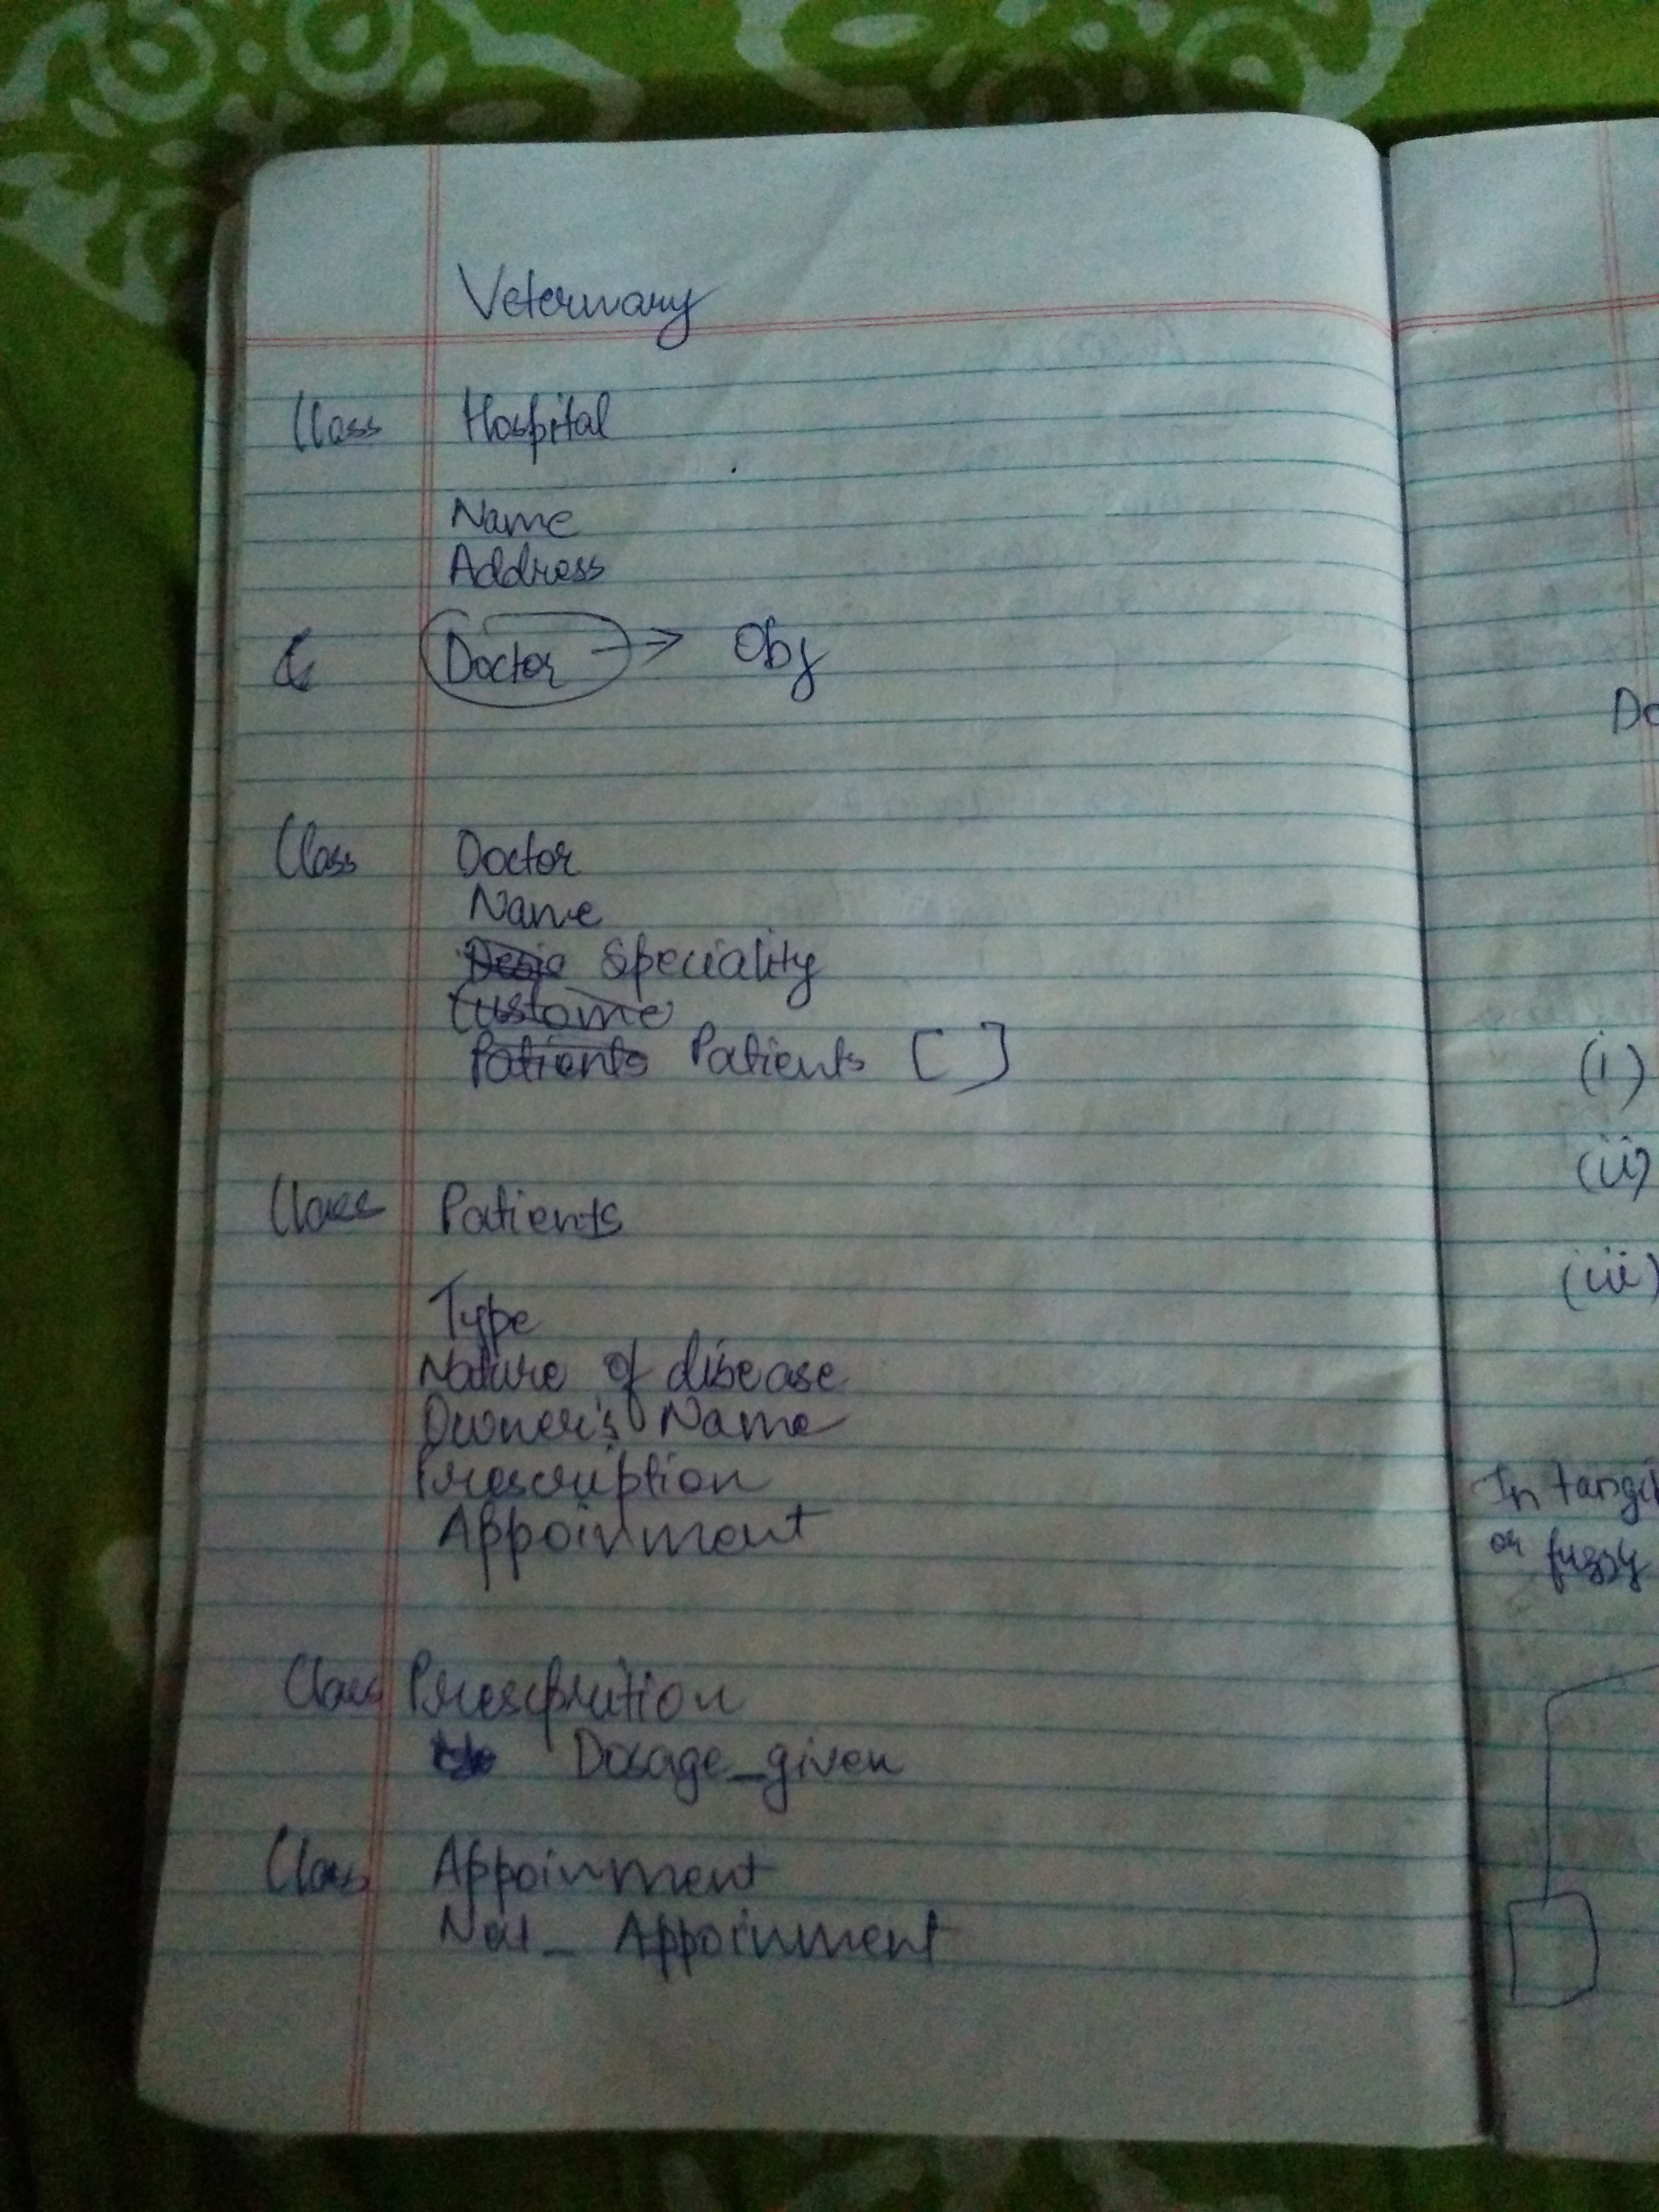 Veterinary
Class Hospital
Name
Address
Doctor → Obj
Class Doctor
Name
Speciality
Custome
Patients Patients []
Class Patients
Type
Nature of disease
Owner's Name
Prescription
Appoinment
Class Prescprition
Dosage_given
Class Appoinment
Appoinment
(i)
(ii)
(iii)
or fuzzy